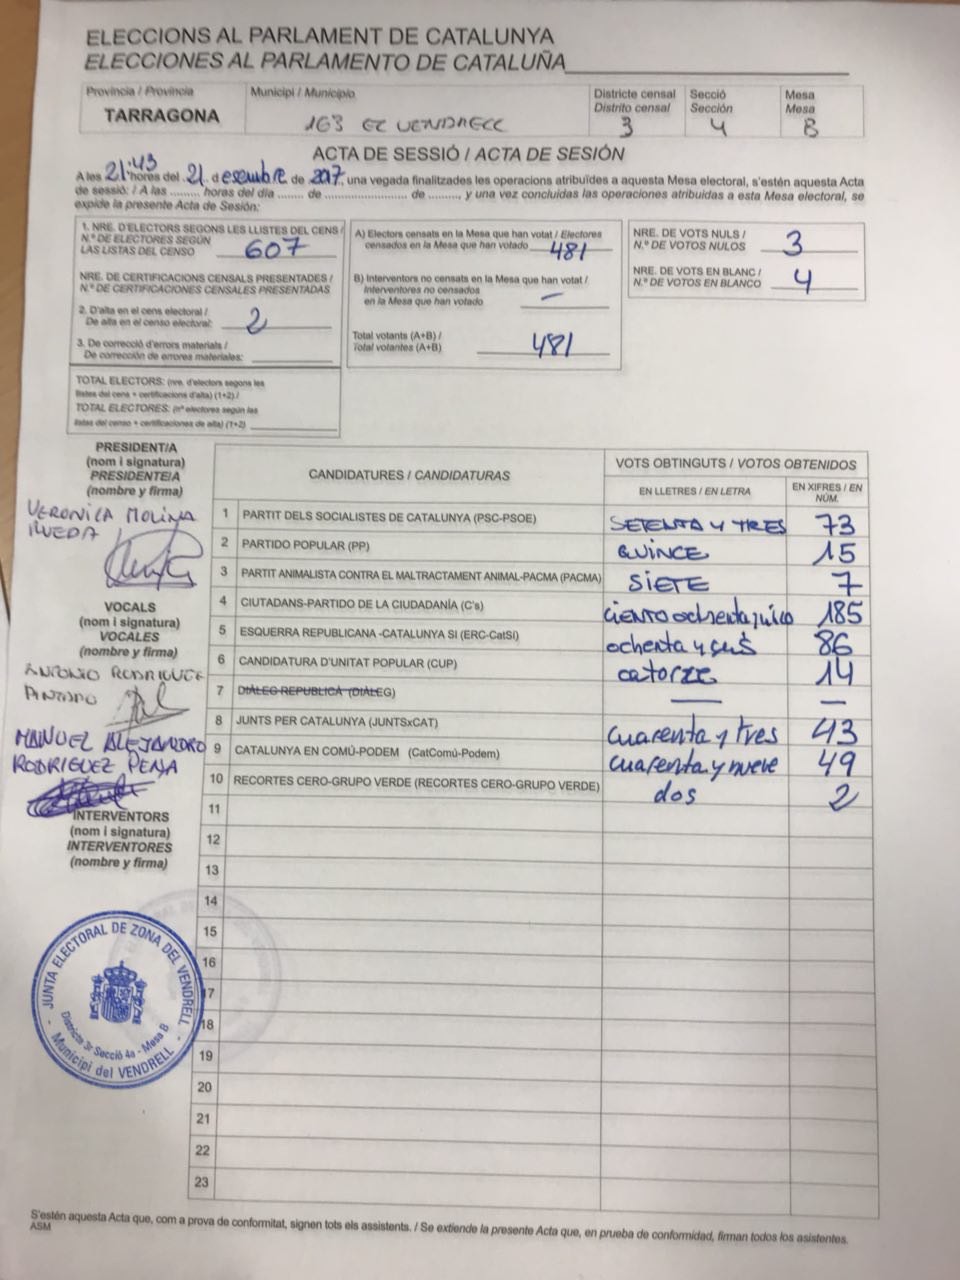 ELECCIONS AL PARLAMENT DE CATALUNYA
ELECCIONES AL PARLAMENTO DE CATALUÑA
Província / Provincia
TARRAGONA
Municipi / Municipio
163 EL VENDRELL
Districte censal
Distrito censal
3
Secció
Sección
4
Mesa
Mesa
B
ACTA DE SESSIÓ / ACTA DE SESIÓN
A les 21:43 hores del 21 d desembre de 2017, una vegada finalitzades les operacions atribuïdes a aquesta Mesa electoral, s'estén aquesta Acta
de sessió: / A las ......... horas del día ........ de ........................ de .........., y una vez concluidas las operaciones atribuidas a esta Mesa electoral, se
expide la presente Acta de Sesión:
1. NRE. D'ELECTORS SEGONS LES LLISTES DEL CENS /
N.º DE ELECTORES SEGÚN
LAS LISTAS DEL CENSO 607
NRE. DE CERTIFICACIONS CENSALS PRESENTADES /
N.º DE CERTIFICACIONES CENSALES PRESENTADAS
2. D'alta en el cens electoral /
De alta en el censo electoral: 2
3. De correcció d'errors materials /
De corrección de errores materiales:
TOTAL ELECTORS: (nre. d'electors segons les
llistes del cens + certificacions d'alta) (1+2) /
TOTAL ELECTORES: (nº electores según las
listas del censo + certificaciones de alta) (1+2)
A) Electors censats en la Mesa que han votat / Electores
censados en la Mesa que han votado 481
B) Interventors no censats en la Mesa que han votat /
Interventores no censados
en la Mesa que han votado —
Total votants (A+B) /
Total votantes (A+B) 481
NRE. DE VOTS NULS /
N.º DE VOTOS NULOS 3
NRE. DE VOTS EN BLANC /
N.º DE VOTOS EN BLANCO 4
PRESIDENT/A
(nom i signatura)
PRESIDENTE/A
(nombre y firma)
VERONICA MOLINA
RUEDA
VOCALS
(nom i signatura)
VOCALES
(nombre y firma)
ANTONIO RODRIGUEZ
MANUEL ALEJANDRO
RODRIGUEZ PENJA
INTERVENTORS
(nom i signatura)
INTERVENTORES
(nombre y firma)
CANDIDATURES / CANDIDATURAS
VOTS OBTINGUTS / VOTOS OBTENIDOS
EN LLETRES / EN LETRA
EN XIFRES / EN
NÚM.
1 PARTIT DELS SOCIALISTES DE CATALUNYA (PSC-PSOE) SETENTA Y TRES 73
2 PARTIDO POPULAR (PP) QUINCE 15
3 PARTIT ANIMALISTA CONTRA EL MALTRACTAMENT ANIMAL-PACMA (PACMA) SIETE 7
4 CIUTADANS-PARTIDO DE LA CIUDADANÍA (C's) ciento ochenta y cinco 185
5 ESQUERRA REPUBLICANA -CATALUNYA SI (ERC-CatSí) ochenta y seis 86
6 CANDIDATURA D'UNITAT POPULAR (CUP) catorze 14
7 DIÀLEG REPUBLICÀ (DIÀLEG) — —
8 JUNTS PER CATALUNYA (JUNTSxCAT) cuarenta y tres 43
9 CATALUNYA EN COMÚ-PODEM (CatComú-Podem) cuarenta y nueve 49
10 RECORTES CERO-GRUPO VERDE (RECORTES CERO-GRUPO VERDE) dos 2
11
12
13
14
15
16
17
18
19
20
21
22
23
JUNTA ELECTORAL DE ZONA DEL VENDRELL
Districte 3r Secció 4a - Mesa B
Municipi del VENDRELL
S'estén aquesta Acta que, com a prova de conformitat, signen tots els assistents. / Se extiende la presente Acta que, en prueba de conformidad, firman todos los asistentes.
ASM